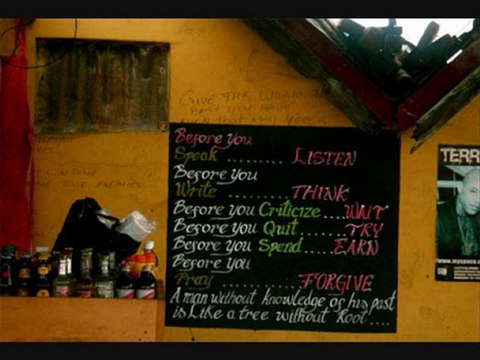 GIVE THE WORLD
Before you
Speak .......... LISTEN
Before you
Write .......... THINK
Before you Criticize....WAIT
Before you Quit......TRY
Before you Spend.....EARN
Before you
Pray ..............FORGIVE
A man without knowledge of his past
is Like a tree without Root ....
TERR
www.myspace.c